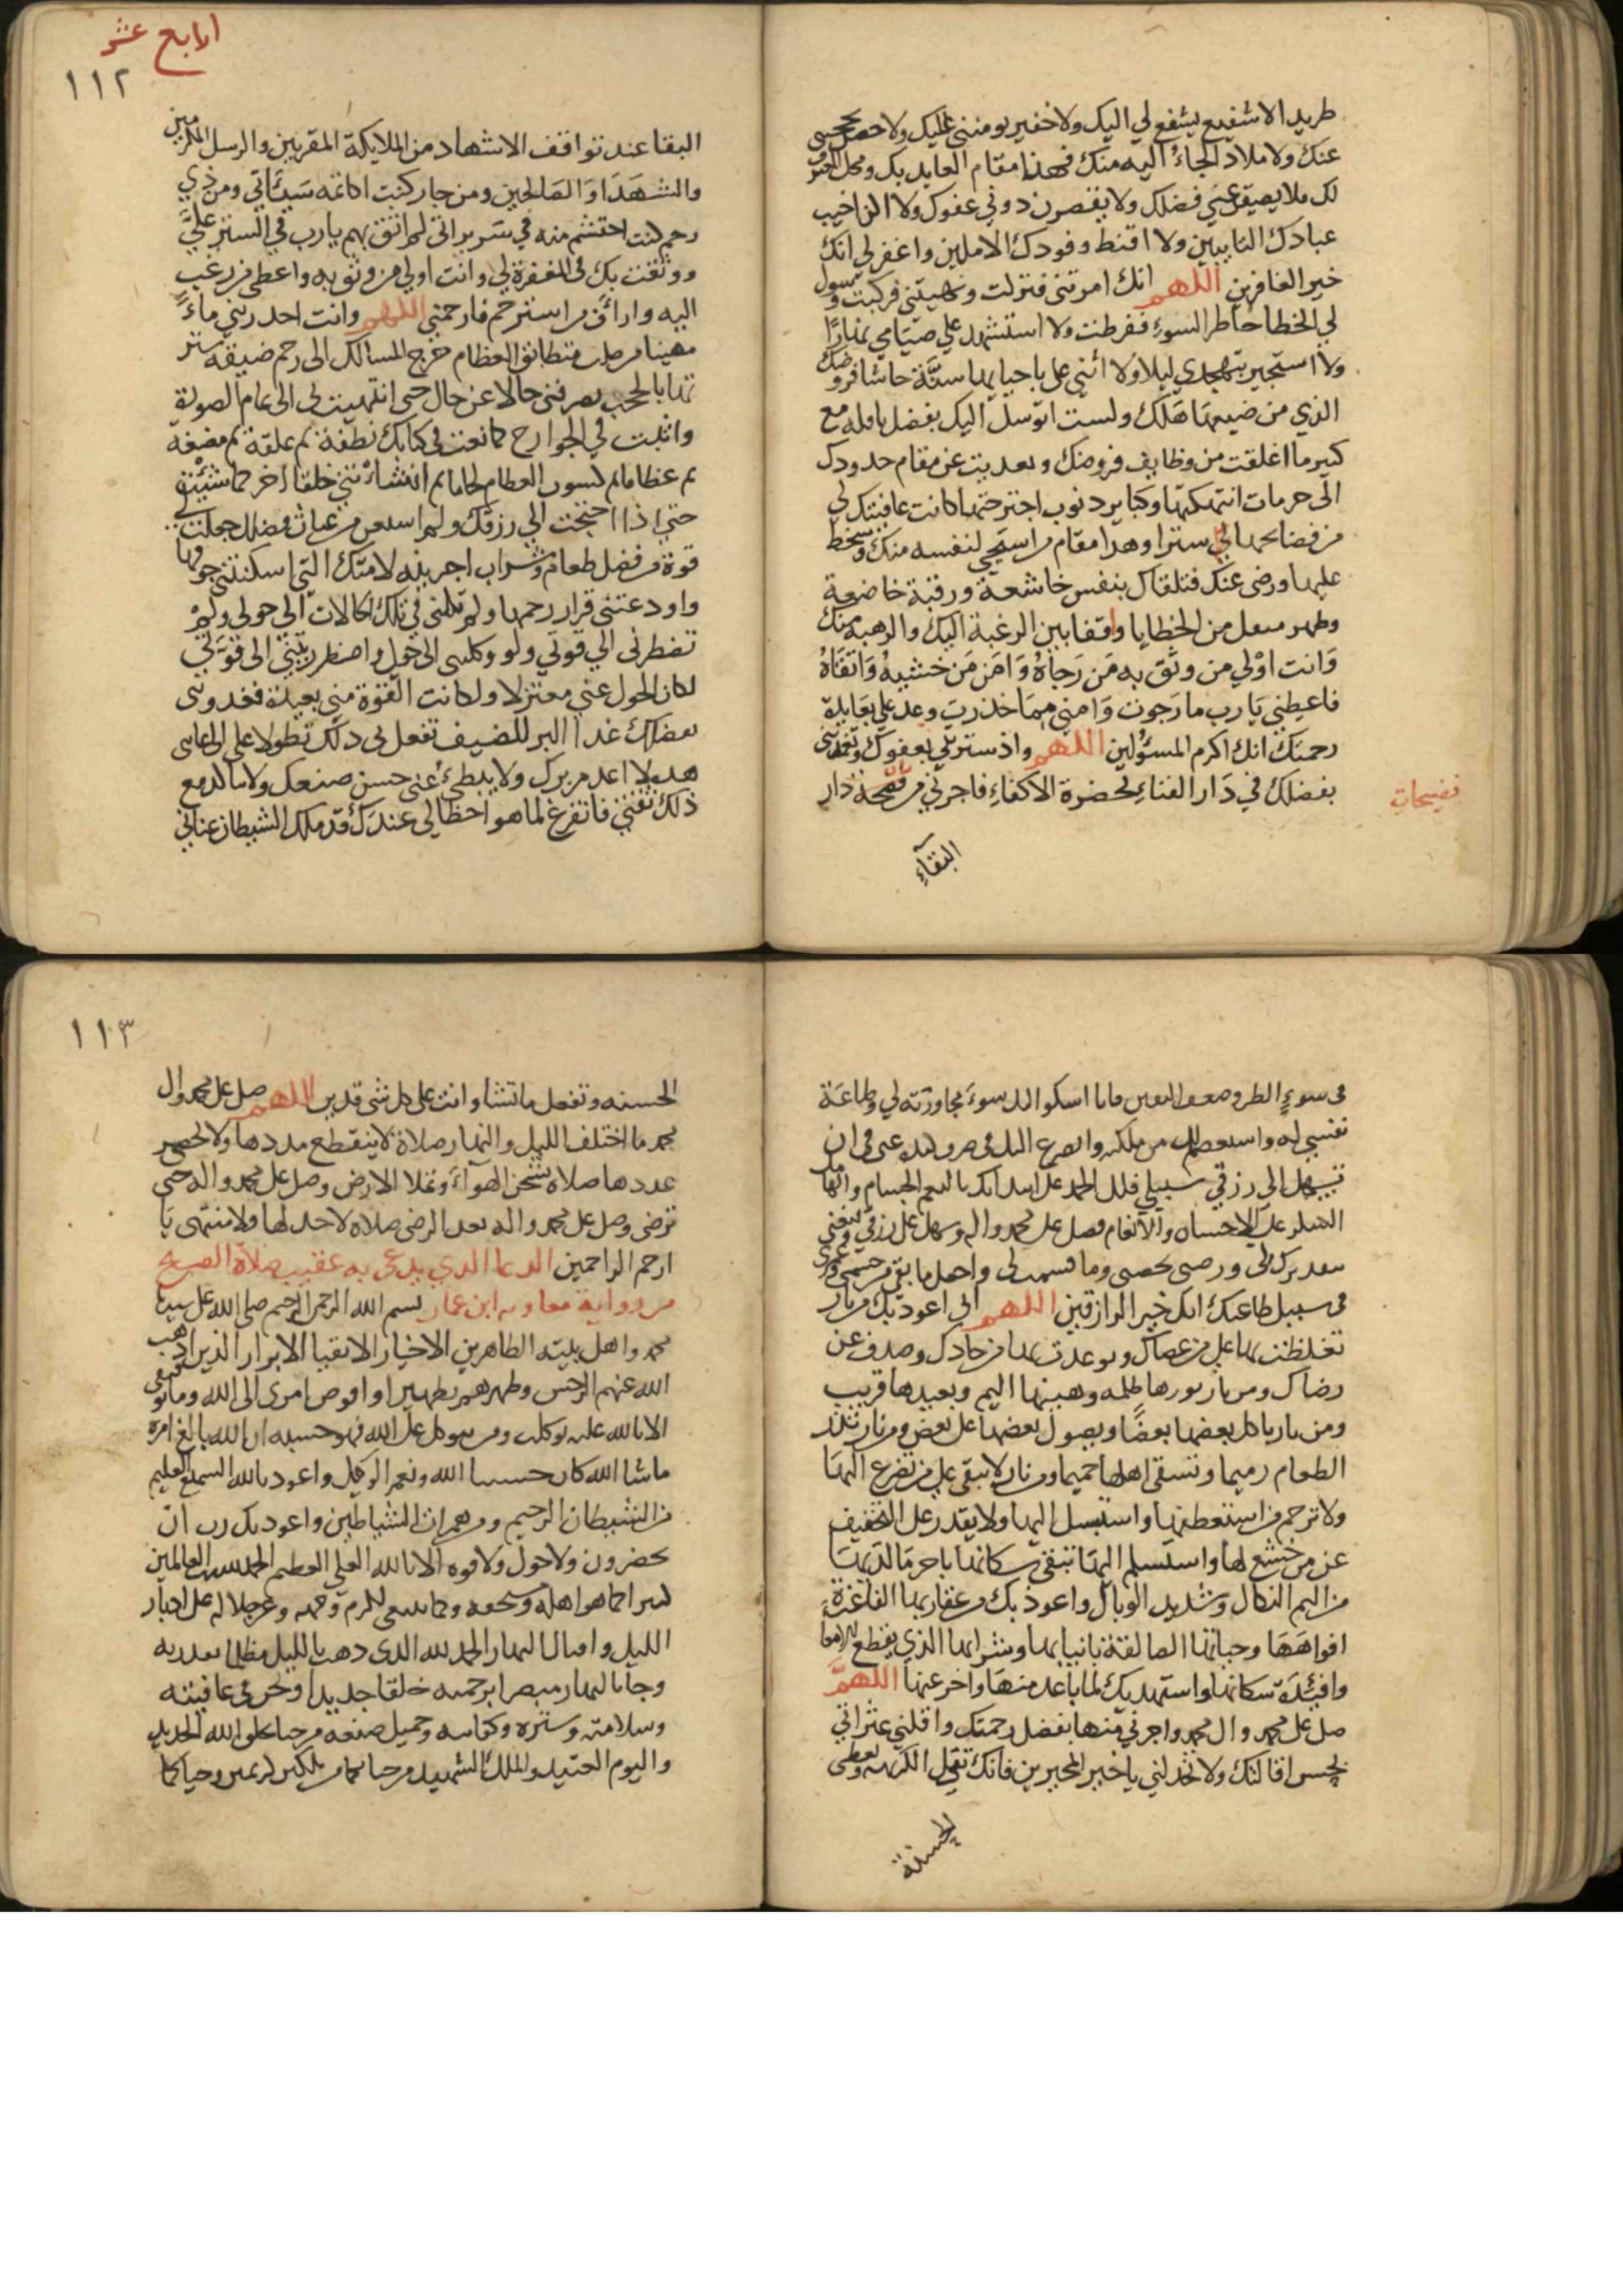 طريد الا شفيع يشفع لي اليك ولا خفير يومنني عليك ولا حصن يحجبني
عنك ولا ملاذ الجاءُ اليه منك فهذا مقام العايد بك ومحل المعترف
لك فلا يضيقن عني فضلك ولا يقصرن دوني عفوك ولا اكن اخيب
عبادك التايبين ولا اقنط وفودك الاملين واغفر لي انك
خير الغافرين اللهم انك امرتني فتركت ونهيتني فركبت وسول
لي الخطا خاطر السوءِ ففرطت ولا استشهد على صيامي نهارًا
ولا استجير بتهجدي ليلا ولا تثني علي باحيايها سنَّة حاشا فروضك
الذي من ضيعها هلك ولست اتوسل اليك بفضل نافلة مع
كبير ما اغفلت من وظايف فروضك وتعديت عن مقام حدودك
الى حرمات انتهكتها وكباير ذنوب اجترحتها كانت عافيتك لي
من فضايحها سترا وهذا مقام من استحيى لنفسه منك وسخط
عليها ورضى عنك فتلقاك بنفس خاشعة ورقبة خاضعة
وظهر مثقل من الخطايا واقفا بين الرغبة اليك والرهبة منك
وَانت اوْلي من وثق به مَن رَجاهُ وَامَن مَن خشيهُ وَاتقاهُ
فاعطني يَا رب ما رَجوت وَامني مِمَا حذرت وعد علي بعَايدة
رحمتك انك اكرم المسئولين اللهم واذ سترتني بعفوك وتغمدتني
بفضلك في دَار الفناءِ بحضرة الاكفاءِ فاجرني من فضيحة دار
فضيحات
البقآءِ
الرابع عشر
١١٢
البقا عند تواقف الاشهاد من الملايكة المقربين والرسل المكرمين
والشهَدَا وَالصَالحين ومن جار كنت اكاتمه سَيئاتي ومن ذي
رحم كنت احتشم منه في سَريراتي لم اثق بهم يا رب في الستر عليَّ
ووثقت بك في المغفرة لي وانت اولي من وثق به واعطى من رغب
اليه واراف من استرحم فارحمني اللهم وانت احدرتني ماءً
مهينا من صلب متضايق العظام حرج المسالك الى رحم ضيقة ستر
تها بالحجب تصرفني حالا عن حال حتى انتهيت بي الى تمام الصورة
واثبت في الجوارح كما نعت في كتابك نطفة ثم علقة ثم مضغة
ثم عظاما ثم كسوت العظام لحما ثم انشاءتني خلقا اخر كما شئت
حتي اذا احتجت الي رزقك ولم استغن من غياث فضلك جعلت لي
قوة من فضل طعام وشراب اجريته لامتك التي اسكنتني جوفها
واودعتني قرار رحمها ولو تكلني في تلك الحالات الي حولي ولم
تضطرني الي قوتي ولو وكلتني الى حولي واضطررتني الى قوتي
لكان الحول عني معتزلا ولكانت القوة مني بعيدة فغدوتني
بفضلك غدا البر للضيف تفعل بي ذلك تطولا على الى غايتي
هذه لا اعدم برك ولا يبطئ عني حسن صنعك ولا تتاكد مع
ذلك ثقتي فاتفرغ لما هو احظا لي عندك قد ملك الشيطان عناني
في سوءِ الظن وضعف اليقين فانا اشكوا اليك سوءَ مجاورته لي وطاعَة
نفسي له واستعصمك من ملكته واتضرع اليك في صرف كيده عني في ان
تسهل الى رزقي سبيلي فلك الحمد على ابتدائك بالنعم الجسام والهامك
الشكر على الاحسان والانعام فصل على محمد واله وسهل علي رزقي وقنعني
بتقديرك لي ورضني بحصتي وما قسمت لي واجعل ما بقي من جسمي وعمري
في سبيل طاعتك انك خير الرازقين اللهم اني اعوذ بك من نار
تغلظت بها على من عصاك وتوعدت بها من حادك وصدف عن
رضاك ومن نار نورها ظلمه وهينها اليم وبعيدها قريب
ومن نار ياكل بعضها بعضًا ويصول بعضها على بعض ومن نار تذر
العظام رميما وتسقي اهلها حميما ومن نار لا تبقي على من تضرع اليهَا
ولا ترحم من استعطفها واستبسل اليها ولا يقدر على التخفيف
عن من خشع لها واستسلم اليهَا تبقي سكانها باحر مَا لدَيهَا
من اليم النكال وشديد الوبال واعوذ بك من عقاربها الفاغرة
افواهَهَا وحياتها الصالقة بانيابها وشرابها الذي يقطع امعا
وافئدَة سكانها واستهديك لما باعد منهَا واخر عنها اللهمَّ
صل على محمد وال محمد واجرني منها بفضل رحمتك واقلني عثراتي
بحسن اقالتك ولا تخذلني يا خير المجيرين فانك تقي الكريهة وتعطي
الحسنة
١١٣
الحسنه وتفعل ما تشا وانت على كل شى قدير اللهم صل على محمد وال
محمد ما اختلف الليل والنهار صلاة لا ينقطع مددها ولا يحصى
عددها صلاة تشحن الهوآءَ وتملا الارض وصل على محمد واله حتى
ترضى وصل على محمد واله بعد الرضى صلاه لا حد لها ولا منتهى يَا
ارحم الراحمين الدعا الذي يدعى به عقيب صلاة الصبح
من رواية معاويه ابن عمار بسم الله الرحمن الرحيم صلى الله على سيدنا
محمد واهل بيته الطاهرين الاخيار الاتقيا الابرار الذين اذهب
الله عنهم الرجس وطهرهم تطهيرا وافوض امرى الى الله وما توفيقى
الا بالله عليه توكلت ومن يتوكل على الله فهو حسبه ان الله بالغ امره
ماشا الله كان حسبنا الله ونعم الوكيل واعوذ بالله السميع العليم
من الشيطان الرجيم ومن همزات الشياطين واعوذ بك رب ان
يحضرون ولا حول ولا قوه الا بالله العلي العظيم الحمد لله رب العالمين
كثيرا كما هو اهله ومستحقه وكما ينبغي لكرم وجهه وعز جلاله على ادبار
الليل واقبال النهار الحمد لله الذى ذهب بالليل مظلما بقدرته
وجا بالنهار مبصرا برحمته خلقا جديدا ونحن في عافيته
وسلامته وستره وكفايته وجميل صنعه مرحبا بخلق الله الجديد
واليوم العتيد والملك الشهيد مرحبا بكما من ملكين كريمين وحياكما